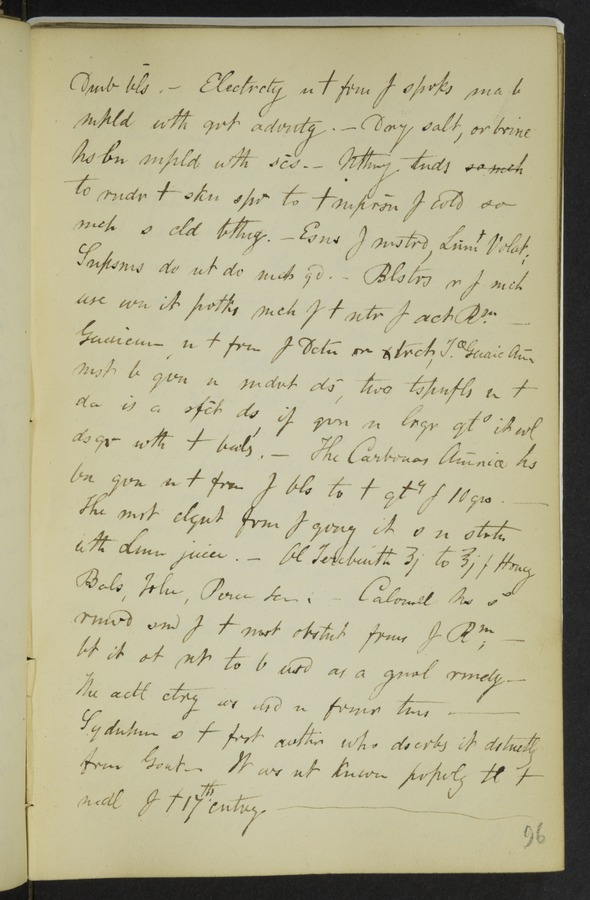 Dmb bls. — Electrcty n t frm f sprks ma b
mpld wth grt advntg. — Dry salt, or brine
hs bn mpld wth scs. — Nthng tnds so mch
to rndr t skn spr to t mprsn f cold so
mch s cld bthng. — Esns f mstrd, Linit Volat,
Snpsms do nt do mch gd. — Blstrs r f mch
use wn it prtks mch f t ntr f act Rm. —
Guaicum, n t frm f Dctn or xtrct, Ta Guaic Am
mst b gvn n mdrt ds, two tspnfls n t
da is a sfct ds if gvn n lrgr qts it wl
dsgr wth t bwls. — The Carbonas Amniae hs
bn gvn n t frm f bls to t qty f 10 grs. —
The mst elgnt frm f gvng it s n sltn
wth Lmn juice. — Ol Terebinth ʒj to ʒij f Honey
Bals, Tolu, Peru — Calomel hs s
rmvd sm f t mst obstnt frms f Rm, —
bt it ot nt to b usd as a gnrl rmdy —
The actl ctry ws usd n frmr tms —
Sydnhm s t frst authr who dscrbs it dstnctly
frm Gout — It ws nt known prprly tl t
mdl f t 17th cntry.
96